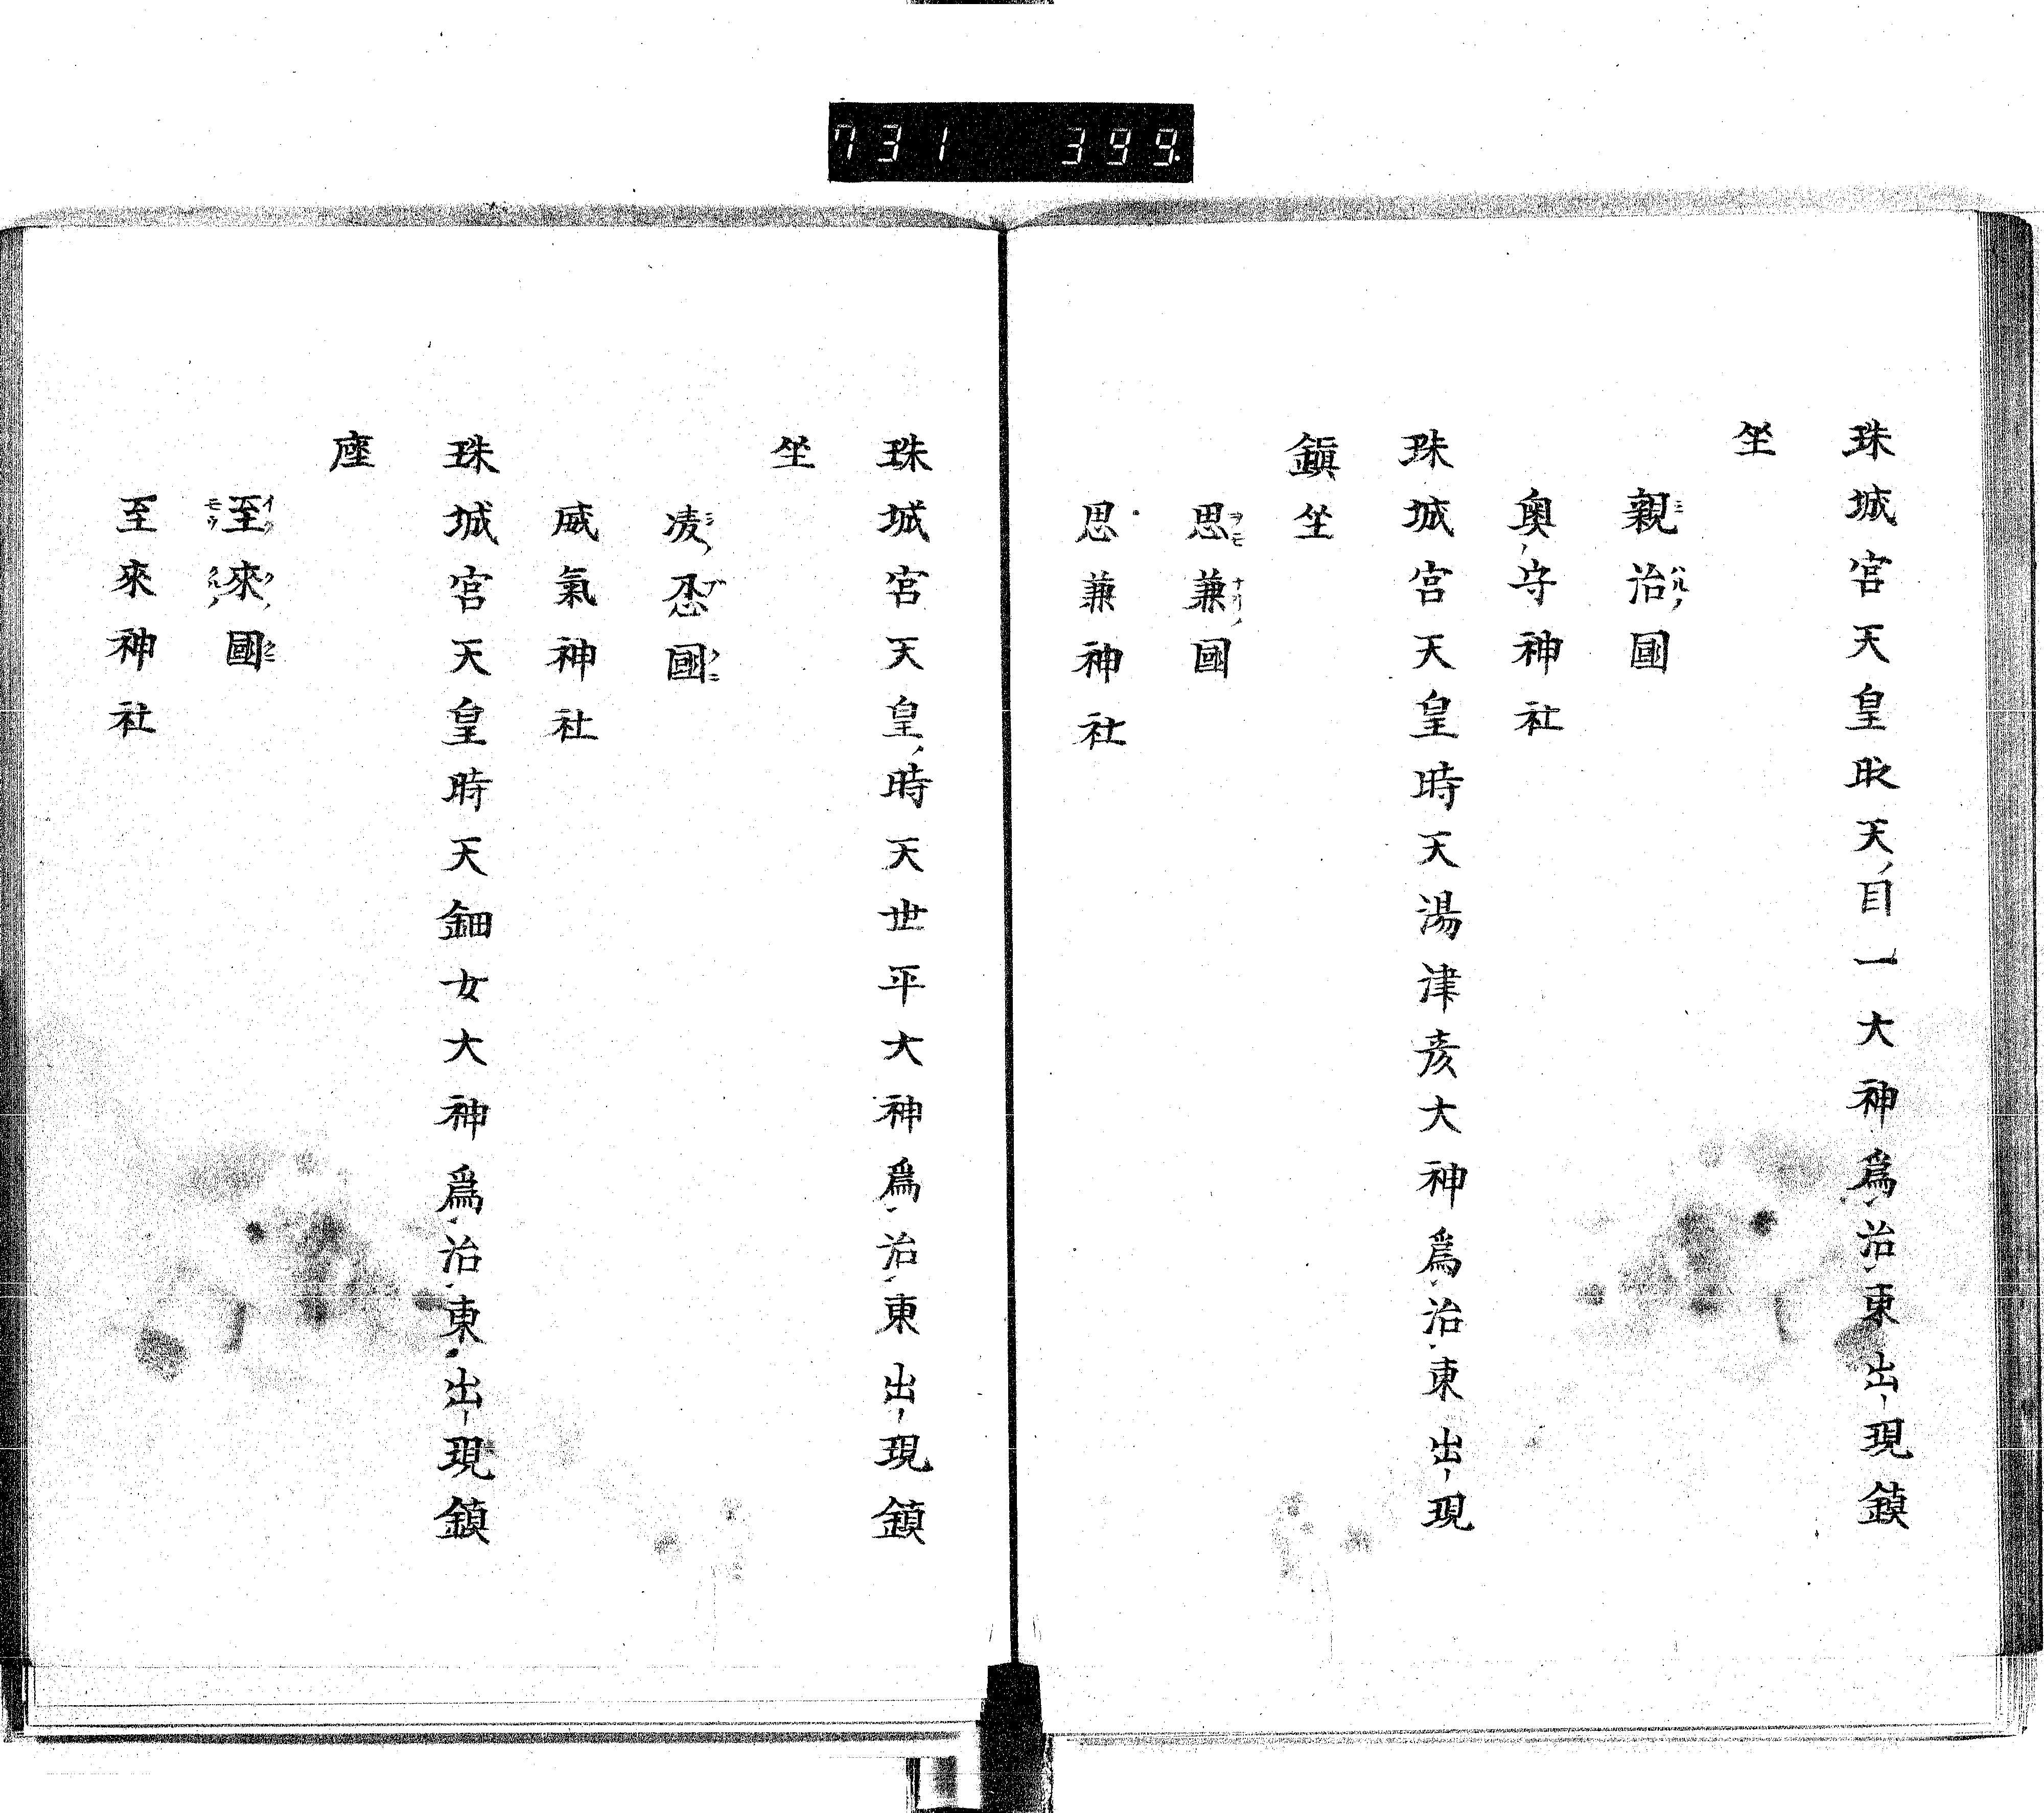 731 399
珠城宮天皇天目一大神爲治東出現鎮
坐
親治國
奥守神社
珠城宮天皇時天湯津彦大神爲治東出現
鎭坐
思兼國
思兼神社
珠城宮天皇時天世平大神爲治東出現鎮
坐
凌忍國
威氣神社
珠城宮天皇時天鈿女大神爲治東出現鎮
座
至來國
至來神社